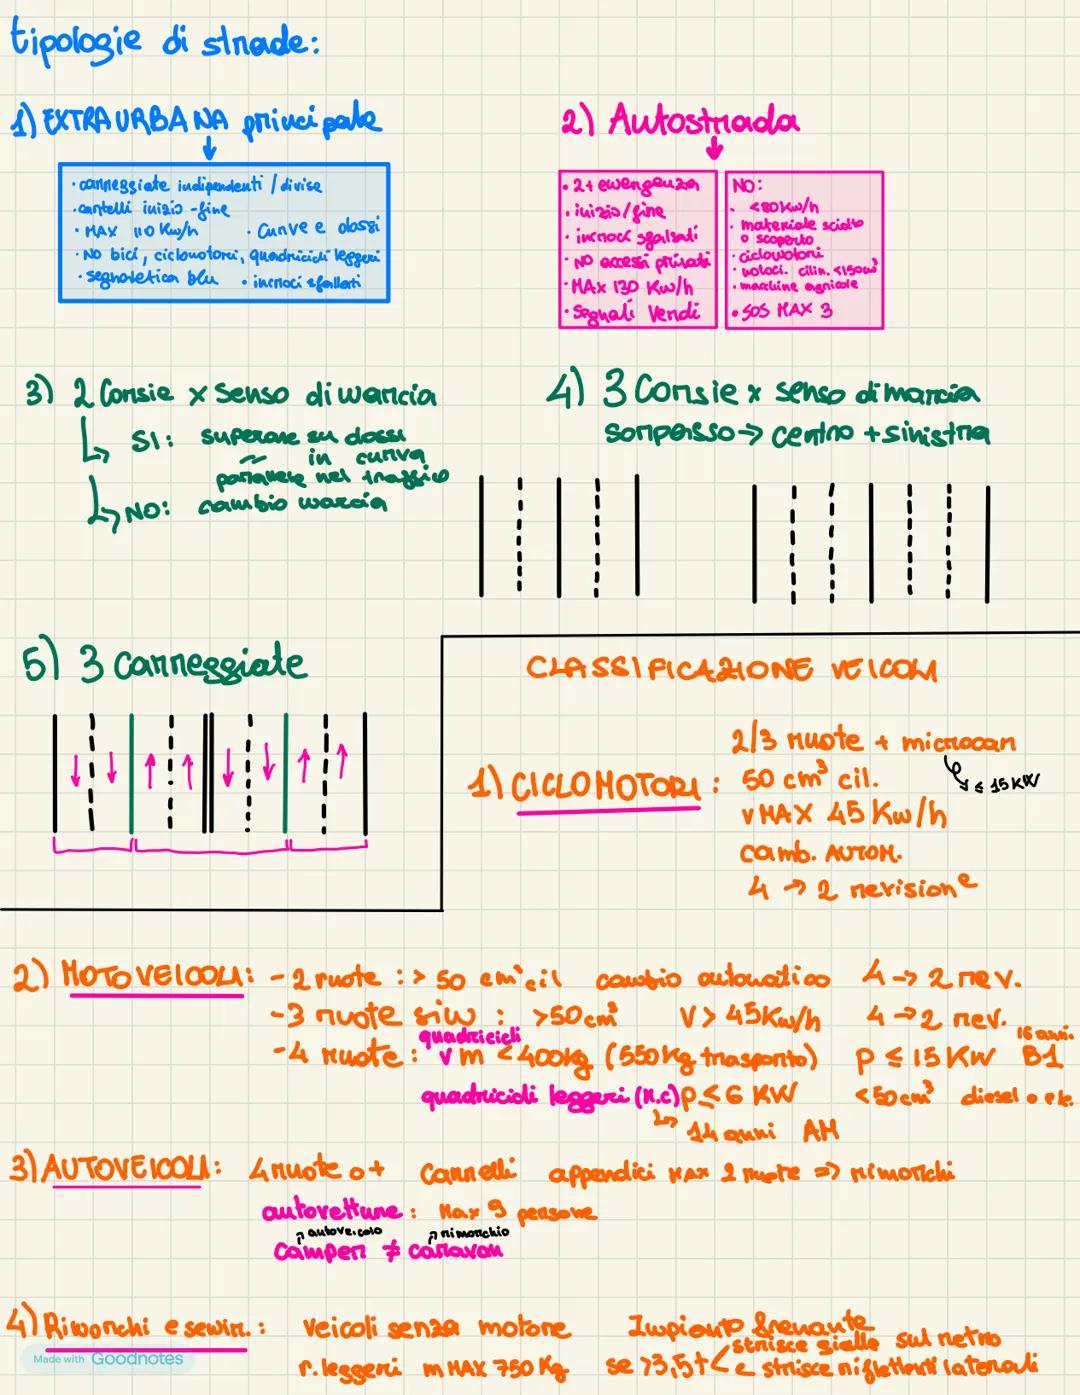 tipologie di strade:
1) EXTRAURBANA principale
· carreggiate indipendenti / divise
· cartelli inizio - fine
· MAX 110 Km/h · Curve e dossi
· NO bici, ciclomotori, quadricicli leggeri
· segnaletica blu · incroci sfalsati
2) Autostrada
· 2 + emergenza
· inizio / fine
· incroci sfalsati
· NO accessi privati
· MAX 130 Km/h
· Segnali Verdi
NO:
· <80 Km/h
· materiale sciolto
o scoperto
· ciclomotori
· motoci. cilin. <150cm³
· macchine agricole
· SOS MAX 3
3) 2 Corsie x senso di marcia
SI: superare su dossi
" in curva
parallele nel traffico
NO: cambio marcia
4) 3 Corsie x senso di marcia
sorpasso → centro + sinistra
5) 3 carreggiate
CLASSIFICAZIONE VEICOLI
1) CICLOMOTORI:
2/3 ruote + microcar
≤ 15 KW
50 cm³ cil.
v MAX 45 Km/h
camb. AUTOM.
4 → 2 revisione
2) MOTOVEICOLI: - 2 ruote : > 50 cm³ cil cambio automatico 4 → 2 rev.
- 3 ruote sim : >50 cm³ V > 45 Km/h 4 → 2 rev.
quadricicli 16 anni.
- 4 ruote: v m < 400kg (550 Kg trasporto) P ≤ 15 KW B1
quadricicli leggeri (M.C) P ≤ 6 KW <50 cm³ diesel o elt.
14 anni AM
3) AUTOVEICOLI: 4 ruote o + carrelli appendici MAX 2 ruote ⇒ rimorchi
autovetture: Max 9 persone
autoveicolo rimorchio
Camper ≠ caravan
4) Rimorchi e semir.: veicoli senza motore Impianto frenante
strisce gialle sul retro
r. leggeri m MAX 750 Kg se >3,5t < e strisce riflettenti laterali
Made with Goodnotes